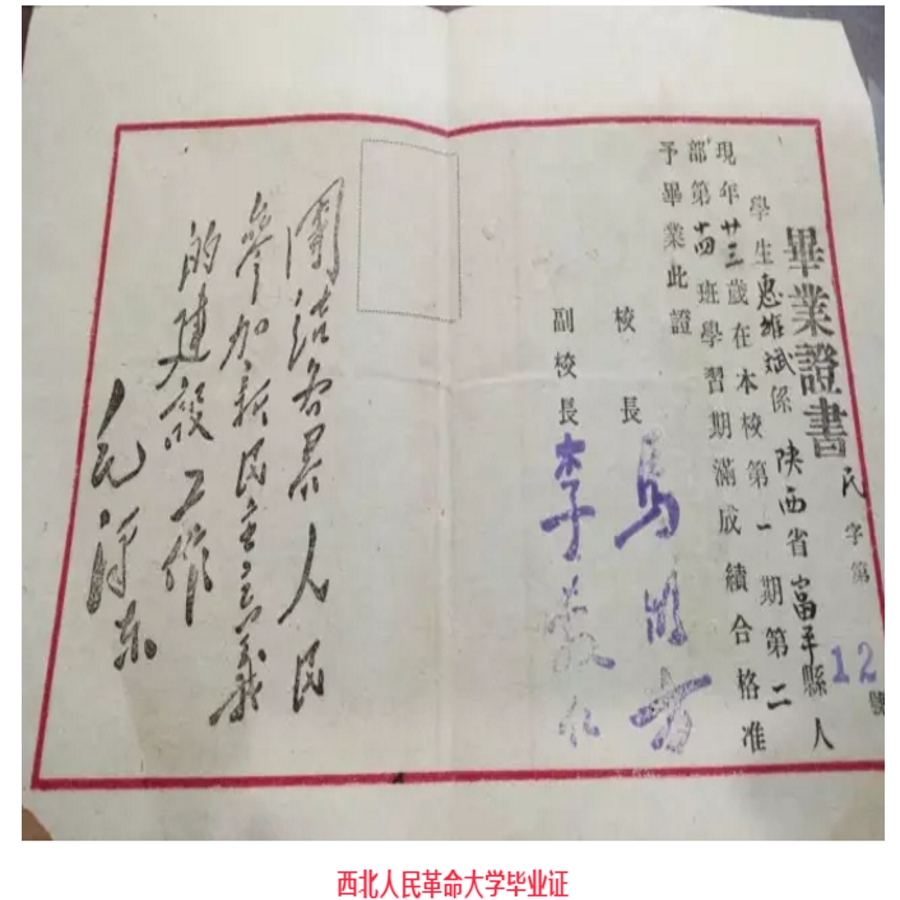 畢業證書
民字第12號
學生惠維斌係陝西省富平縣人
現年廿三歲在本校第一期第二
部第十四班學習期滿成績合格准
予畢業此證
校長 馬明方
副校長 李敷仁
團結各界人民
參加新民主主義
的建設工作
毛澤東
西北人民革命大学毕业证